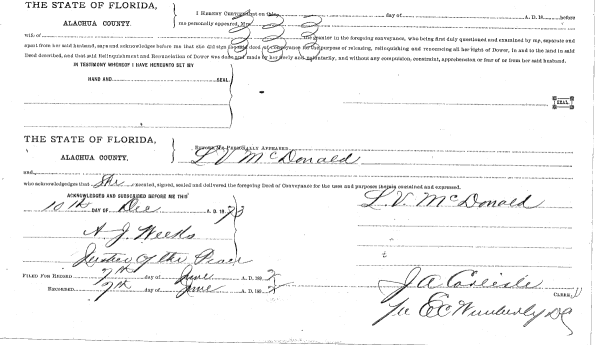 THE STATE OF FLORIDA,
ALACHUA COUNTY.
I HEREBY CERTIFY, That on this day of A. D. 18 before
me personally appeared, Mrs.
wife of the grantor in the foregoing conveyance, who being first duly questioned and examined by me, separate and
apart from her said husband, says and acknowledges before me that she did sign the said deed of conveyance for the purpose of releasing, relinquishing and renouncing all her right of Dower, in and to the land in said
Deed described, and that said Relinquishment and Renunciation of Dower was done and made by her freely and voluntarily, and without any compulsion, constraint, apprehension or fear of or from her said husband.
IN TESTIMONY WHEREOF I HAVE HEREUNTO SET MY
HAND AND SEAL
SEAL
THE STATE OF FLORIDA,
ALACHUA COUNTY.
BEFORE ME PERSONALLY APPEARED
L. V. McDonald
and
who acknowledges that She executed, signed, sealed and delivered the foregoing Deed of Conveyance for the uses and purposes therein contained and expressed.
ACKNOWLEDGED AND SUBSCRIBED BEFORE ME THIS
10th DAY OF Dec A. D. 18
L. V. McDonald
A J Weeks
Justice of the Peace
FILED FOR RECORD 7th day of June A. D. 189
RECORDED 7th day of June A. D. 189
J A Carlisle
CLERK
E C Wimberly DC